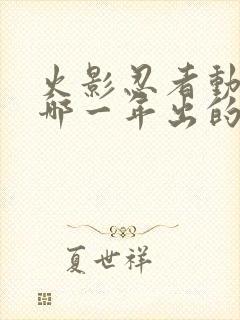 火影忍者動
哪一年出的
夏世祥